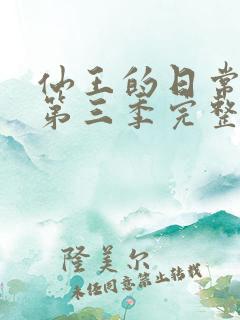 仙王的日常
第三季完整
隆美尔
未经同意禁止转载